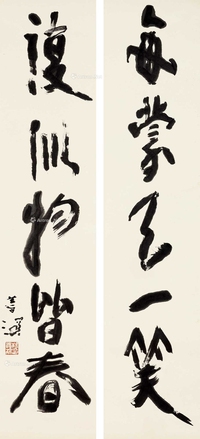 每蒙天一笑
復似物皆春